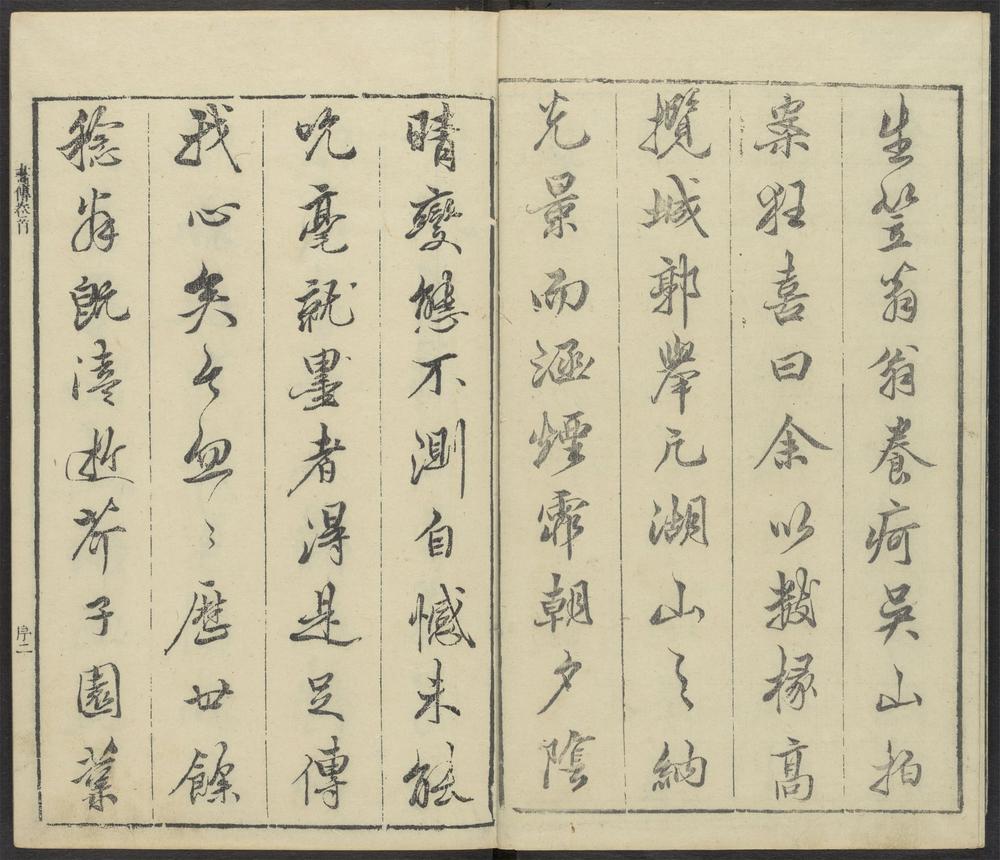 生笠翁翁養疴吳山拍
案狂喜曰余以數椽高
攬城郭舉凡湖山之納
光景而涵煙霏朝夕陰
晴變態不測自憾未能
吮毫就墨者得是足傳
我心矣忽〻歷廿餘
稔翁既溘逝芥子園業
畫傳卷首
序二